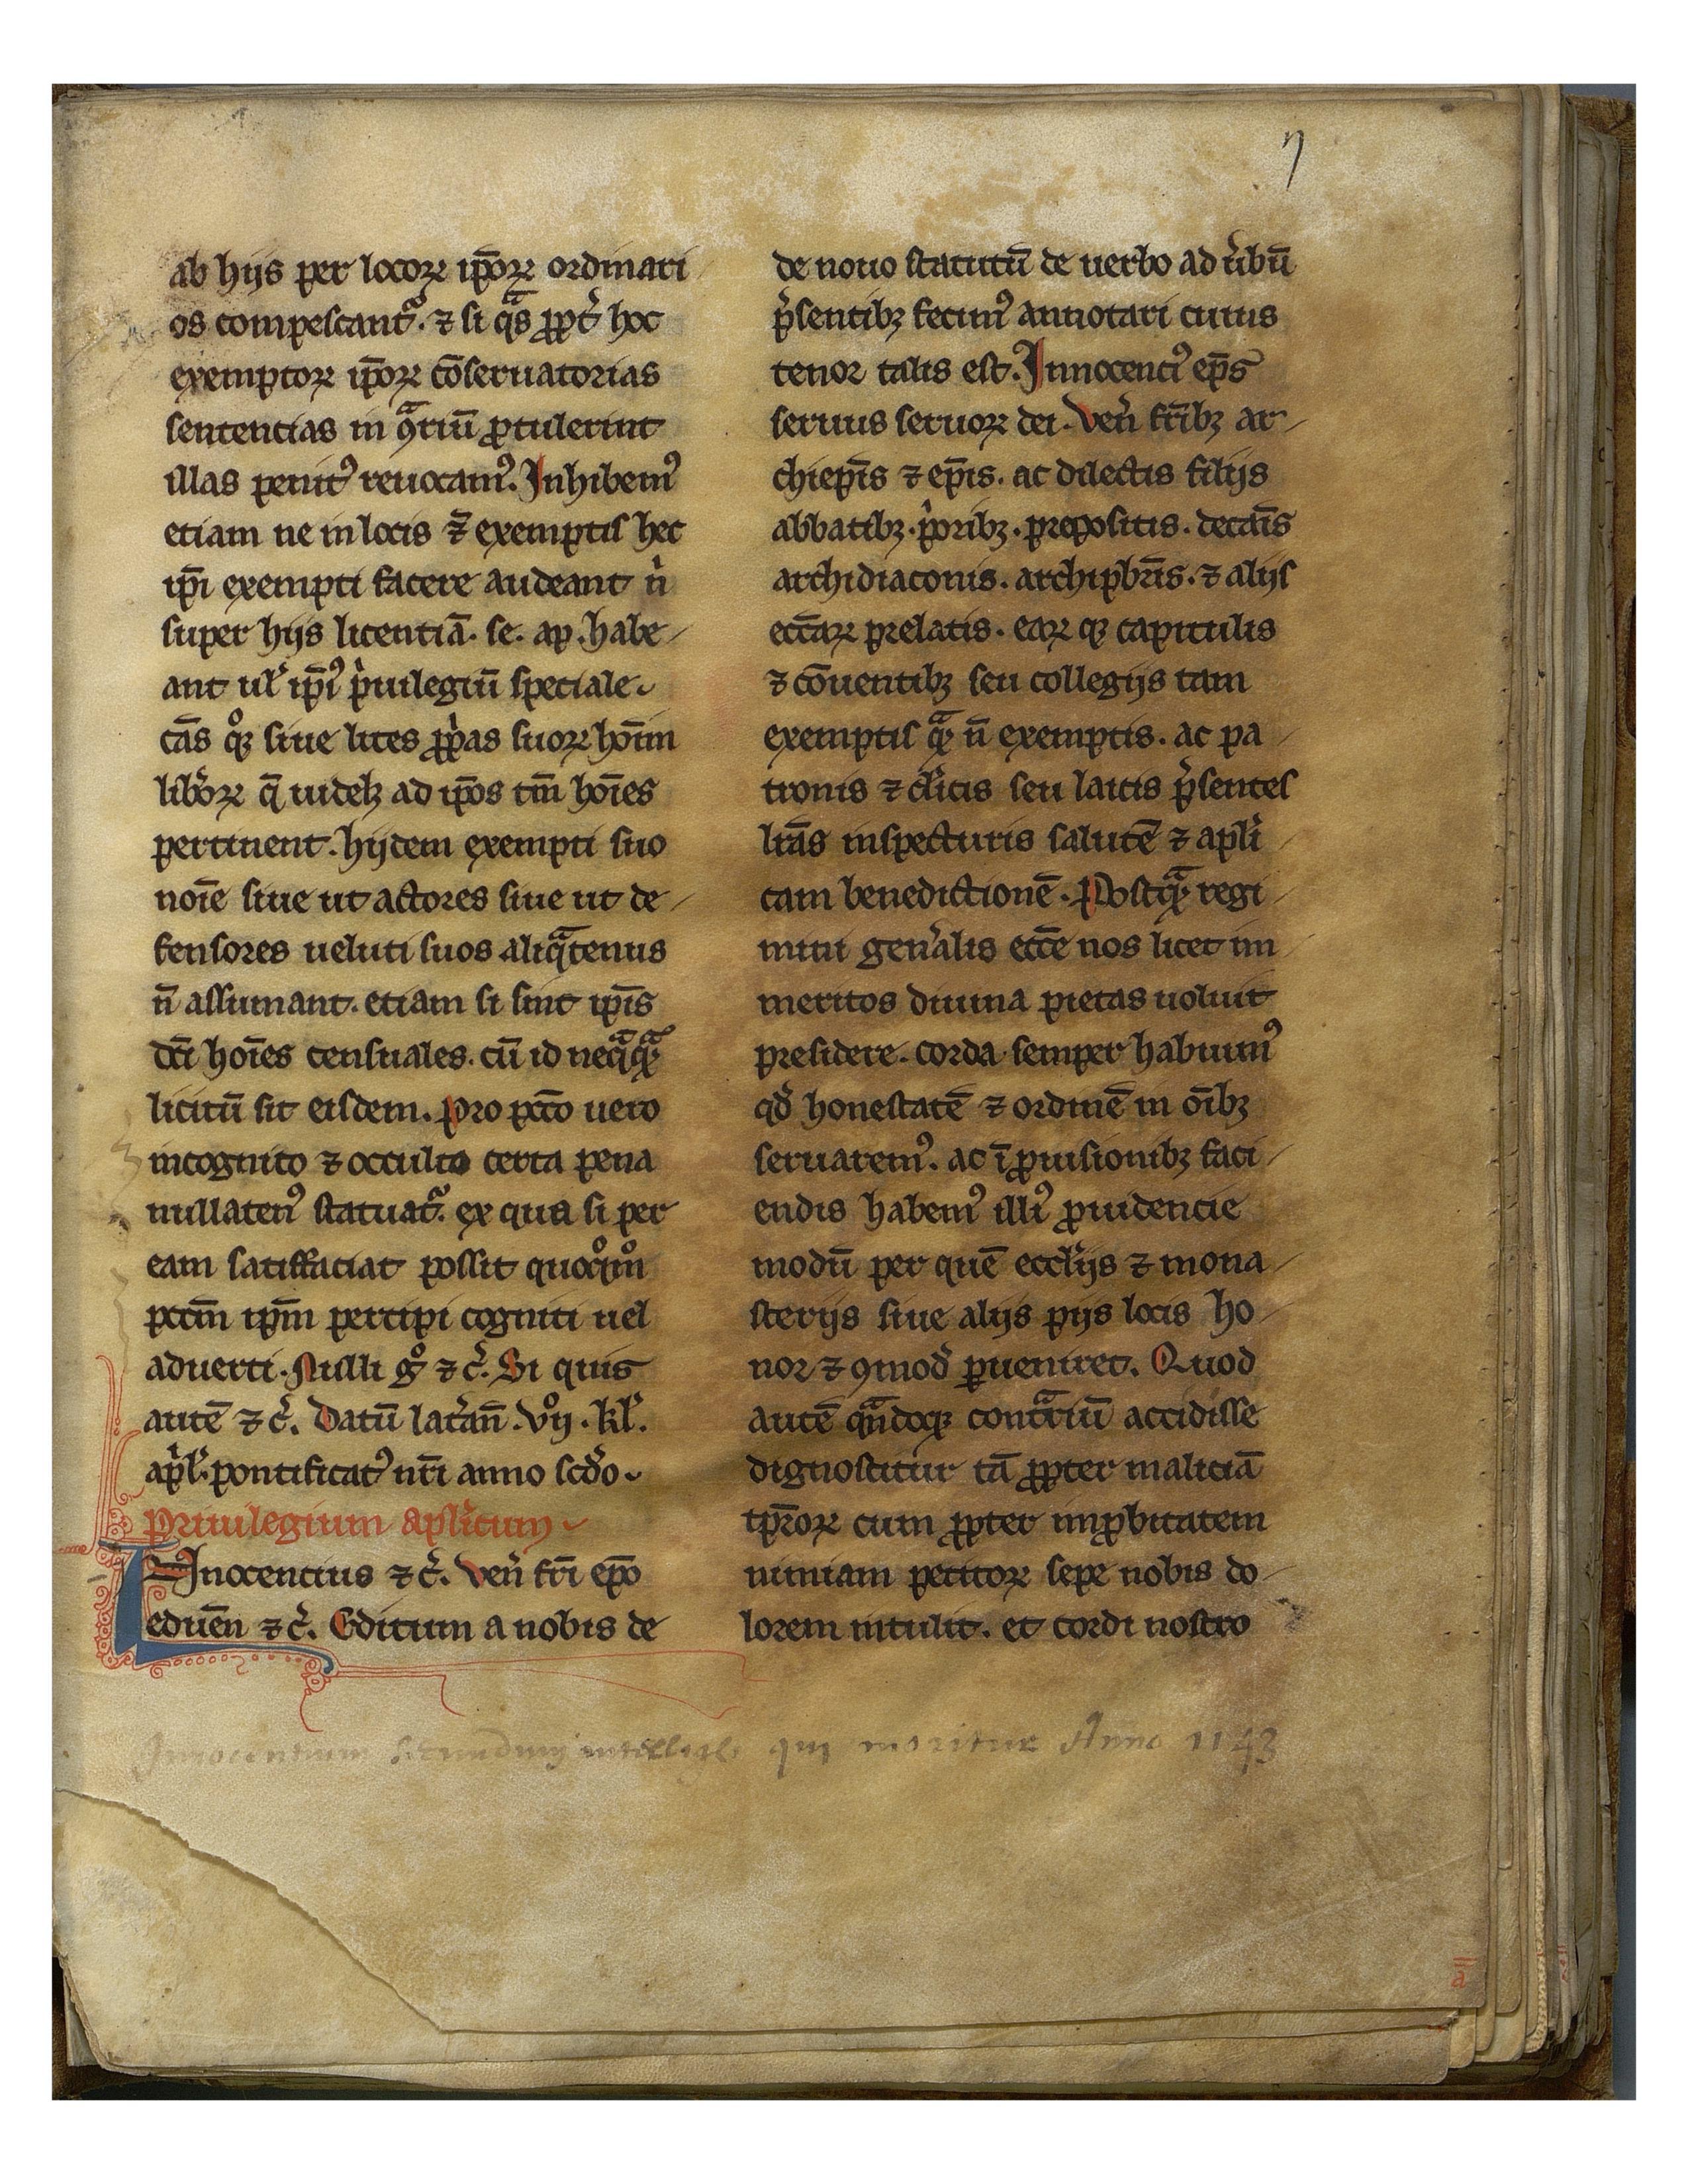 η
ab hijs per locoꝝ ip̄oꝝ ordinari
os compescantᷓ. ⁊ si qᷓs ꝓpt̉ hoc
exemptoꝝ ip̄oꝝ cōseruatorias
sentencias in ꝯᷓriū ꝓtulerint
illas penitꝰ reuocamꝰ. Inhibemꝰ
etiam ne in locis ⁊̄ exemptis hec
ip̄i exempti facere audeant n̉
super hijs licentiā. se. ap. habe
ant ul̉ ip̄iꝰ p̉uilegiū speciale.
cās qͦꝫ siue lites ꝓp̉as suoꝝ hōim
lib̉oꝝ q̄ iudelꝫ ad ip̄os tm̄ hoīes
pertinent. hijdem exempti suo
noīe siue ut actores siue ut de
fensores ueluti suos aliqᷓtenus
n̄ assumant. etiam si sint ip̄is
dc̄i hoīes censuales. cū id neqᷓqᷓꝫ
licitū sit eisdem. Pro pc̄c̄o uero
incognito ⁊ occulto certa pena
nullatenꝰ statuatᷓ. ex qua si per
eam satisfaciat possit quoqͦmͦ
pc̄cm̄ ip̄m percipi cogniti uel
aduerti. Nulli gͦ ⁊c̉. Si quis
autē ⁊c̉. Datū lat̉an̄. vͦij. kl̉.
ap̉l̉. pontificatꝰ nr̄i anno scd̉o.
Priuilegium apl̉icum
Inocencius ⁊c̉. Ven̉ fr̄i ep̄o
eduen̄ ⁊c̉. Editum a nobis de
de nouo statutū de uerbo ad ūbū
p̉sentibꝫ fecimꝰ annotari cuius
tenor talis est. Innocenciꝰ ep̄s
seruus seruoꝝ dei. Ven̉ fr̄ibꝫ ar
chiep̄is ⁊ ep̄is. ac dilectis filijs
abbatibꝫ. p̉oribꝫ. prepositis. decāis
archidiaconis. archipbr̄is. ⁊ alijs
ecc̄aꝝ prelatis. eaꝝ qꝫ capitulis
⁊ cōuentibꝫ seu collegijs tam
exemptis qᷓꝫ n̄ exemptis. ac pa
tronis ⁊ cl̉icis seu laicis p̉sentes
lr̄as inspecturis salutē ⁊ apl̉i
cam benedictionē. Postqᷓꝫ regi
mini gen̉alis ecc̄e nos licet im
meritos diuina pietas uoluit
presidere. corda semper habuimꝰ
qd̉ honestatē ⁊ ordinē in oīb̄ꝫ
seruaremꝰ. ac ī ꝓuisionibꝫ faci
endis habemꝰ illiꝰ ꝓuidencie
modū per quē eccl̉ijs ⁊ mona
sterijs siue alijs pijs locis ho
nor ⁊ ꝯmod̉ ꝓueniret. Quod
autē qn̄ᷓdoqꝫ contᷓriū accidisse
dignoscitur tā ꝓpter maliciā
tp̄roꝝ cum ꝓpter imꝓbitatem
nimiam petitoꝝ sepe nobis do
lorem intulit. et cordi nostro
Innocentium secundum intellige qui moritur Anno 1143